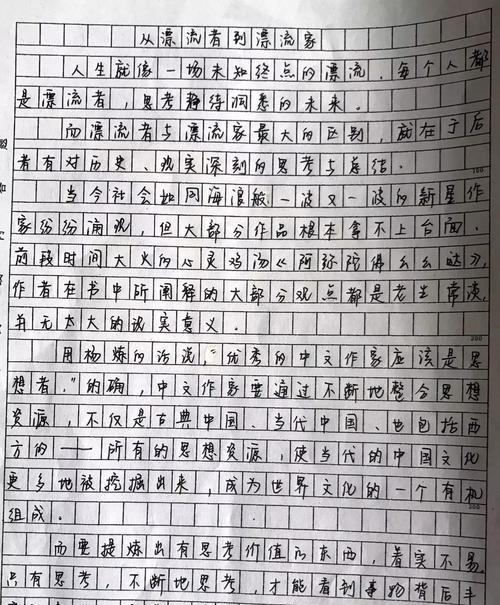 从漂流者到漂流家
人生就像一场未知终点的漂流，每个人都
是漂流者，思考静待洞悉的未来。
而漂流者与漂流家最大的区别，就在于后
者有对历史、现实深刻的思考与总结。
100
当今社会如同海浪般一波又一波的新星作
家纷纷涌现，但大部分作品根本拿不上台面。
前段时间大火的心灵鸡汤《阿弥陀佛么么哒》，
作者在书中所阐释的大部分观点都是老生常谈，
并无太大的现实意义。
200
用杨炼的话说，“优秀的中文作家应该是思
想者。”的确，中文作家要通过不断地整合思想
资源，不仅是古典中国、当代中国、也包括西
方的——所有的思想资源，使当代的中国文化
更多地被挖掘出来，成为世界文化的一个有机
300
组成。
而要提炼出有思考价值的东西，着实不易。
只有思考，不断地思考，才能看到事物背后丰